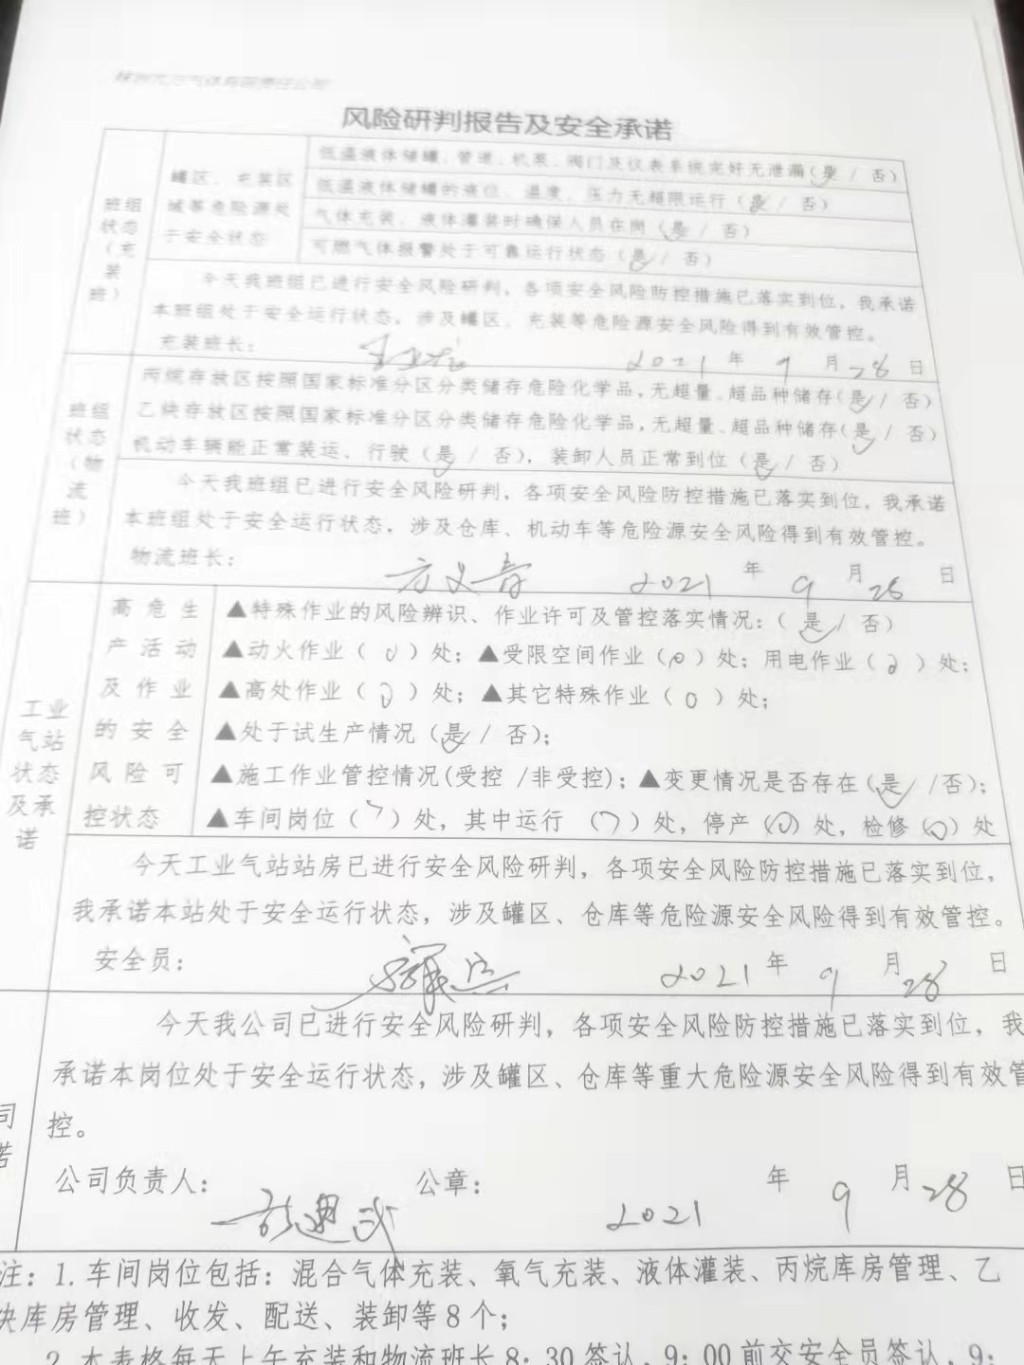 风险研判报告及安全承诺
低温液体储罐、管道、机泵、阀门及仪表系统完好无泄漏(是 / 否)
罐区、充装区 低温液体储罐的液位、温度、压力无超限运行(是 / 否)
班组 域等危险源处 气体充装、液体灌装时确保人员在岗(是 / 否)
状态 于安全状态 可燃气体报警处于可靠运行状态(是 / 否)
(充
装
班)
今天我班组已进行安全风险研判,各项安全风险防控措施已落实到位,我承诺
本班组处于安全运行状态,涉及罐区、充装等危险源安全风险得到有效管控。
充装班长: 2021 年 9 月 28 日
丙烷存放区按照国家标准分区分类储存危险化学品,无超量、超品种储存(是 / 否)
班组 乙炔存放区按照国家标准分区分类储存危险化学品,无超量、超品种储存(是 / 否)
状态 机动车辆能正常装运、行驶(是 / 否),装卸人员正常到位(是 / 否)
(物
流
班)
今天我班组已进行安全风险研判,各项安全风险防控措施已落实到位,我承诺
本班组处于安全运行状态,涉及仓库、机动车等危险源安全风险得到有效管控。
物流班长: 2021 年 9 月 28 日
高危生 ▲特殊作业的风险辨识、作业许可及管控落实情况:(是 / 否)
产活动 ▲动火作业(0)处;▲受限空间作业(0)处;用电作业(0)处;
及作业 ▲高处作业(0)处;▲其它特殊作业(0)处;
工业 的安全 ▲处于试生产情况(是 / 否);
气站
状态 风险可 ▲施工作业管控情况(受控 /非受控);▲变更情况是否存在(是 /否);
及承 控状态 ▲车间岗位(7)处,其中运行(7)处,停产(0)处,检修(0)处
诺
今天工业气站站房已进行安全风险研判,各项安全风险防控措施已落实到位,
我承诺本站处于安全运行状态,涉及罐区、仓库等危险源安全风险得到有效管控。
安全员: 2021 年 9 月 28 日
今天我公司已进行安全风险研判,各项安全风险防控措施已落实到位,我
承诺本岗位处于安全运行状态,涉及罐区、仓库等重大危险源安全风险得到有效管
司 控。
诺
公司负责人: 公章: 2021 年 9 月 28 日
注:1.车间岗位包括:混合气体充装、氧气充装、液体灌装、丙烷库房管理、乙
炔库房管理、收发、配送、装卸等8个;
2.本表格每天上午充装和物流班长8:30签认,9:00前交安全员签认,9: